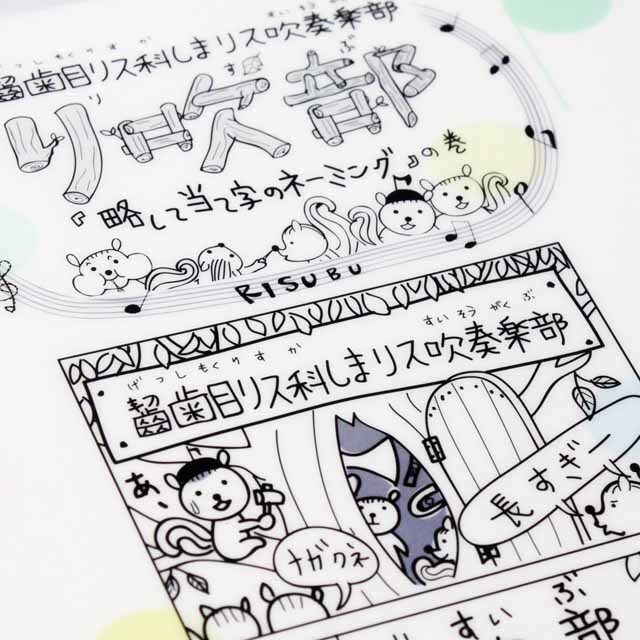 げっしもくりすか すいそうがくぶ
齧歯目リス科しまリス吹奏楽部
リ ず ぶ
リロズ部
『略して当て字のネーミング♪』の巻
RISUBU
げっしもくりすか すいそうがくぶ
齧歯目リス科しまリス吹奏楽部
あ、
長すぎ
ナガクネ
すい ぶ